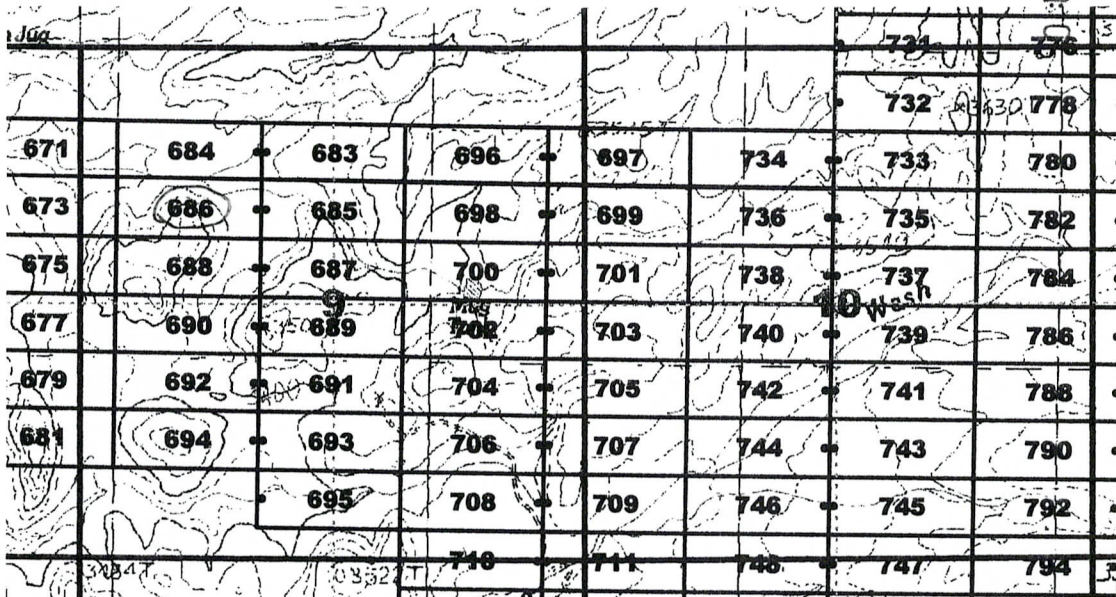 Jug
731 776
732 3630 778
671 684 683 696 697 734 733 780
673 686 685 698 699 736 735 782
675 688 687 700 701 738 737 784
9 10 Wash
677 690 689 702 703 740 739 786
679 692 691 704 705 742 741 788
681 694 693 706 707 744 743 790
695 708 709 746 745 792
710 711 748 747 794
3484T 03522T